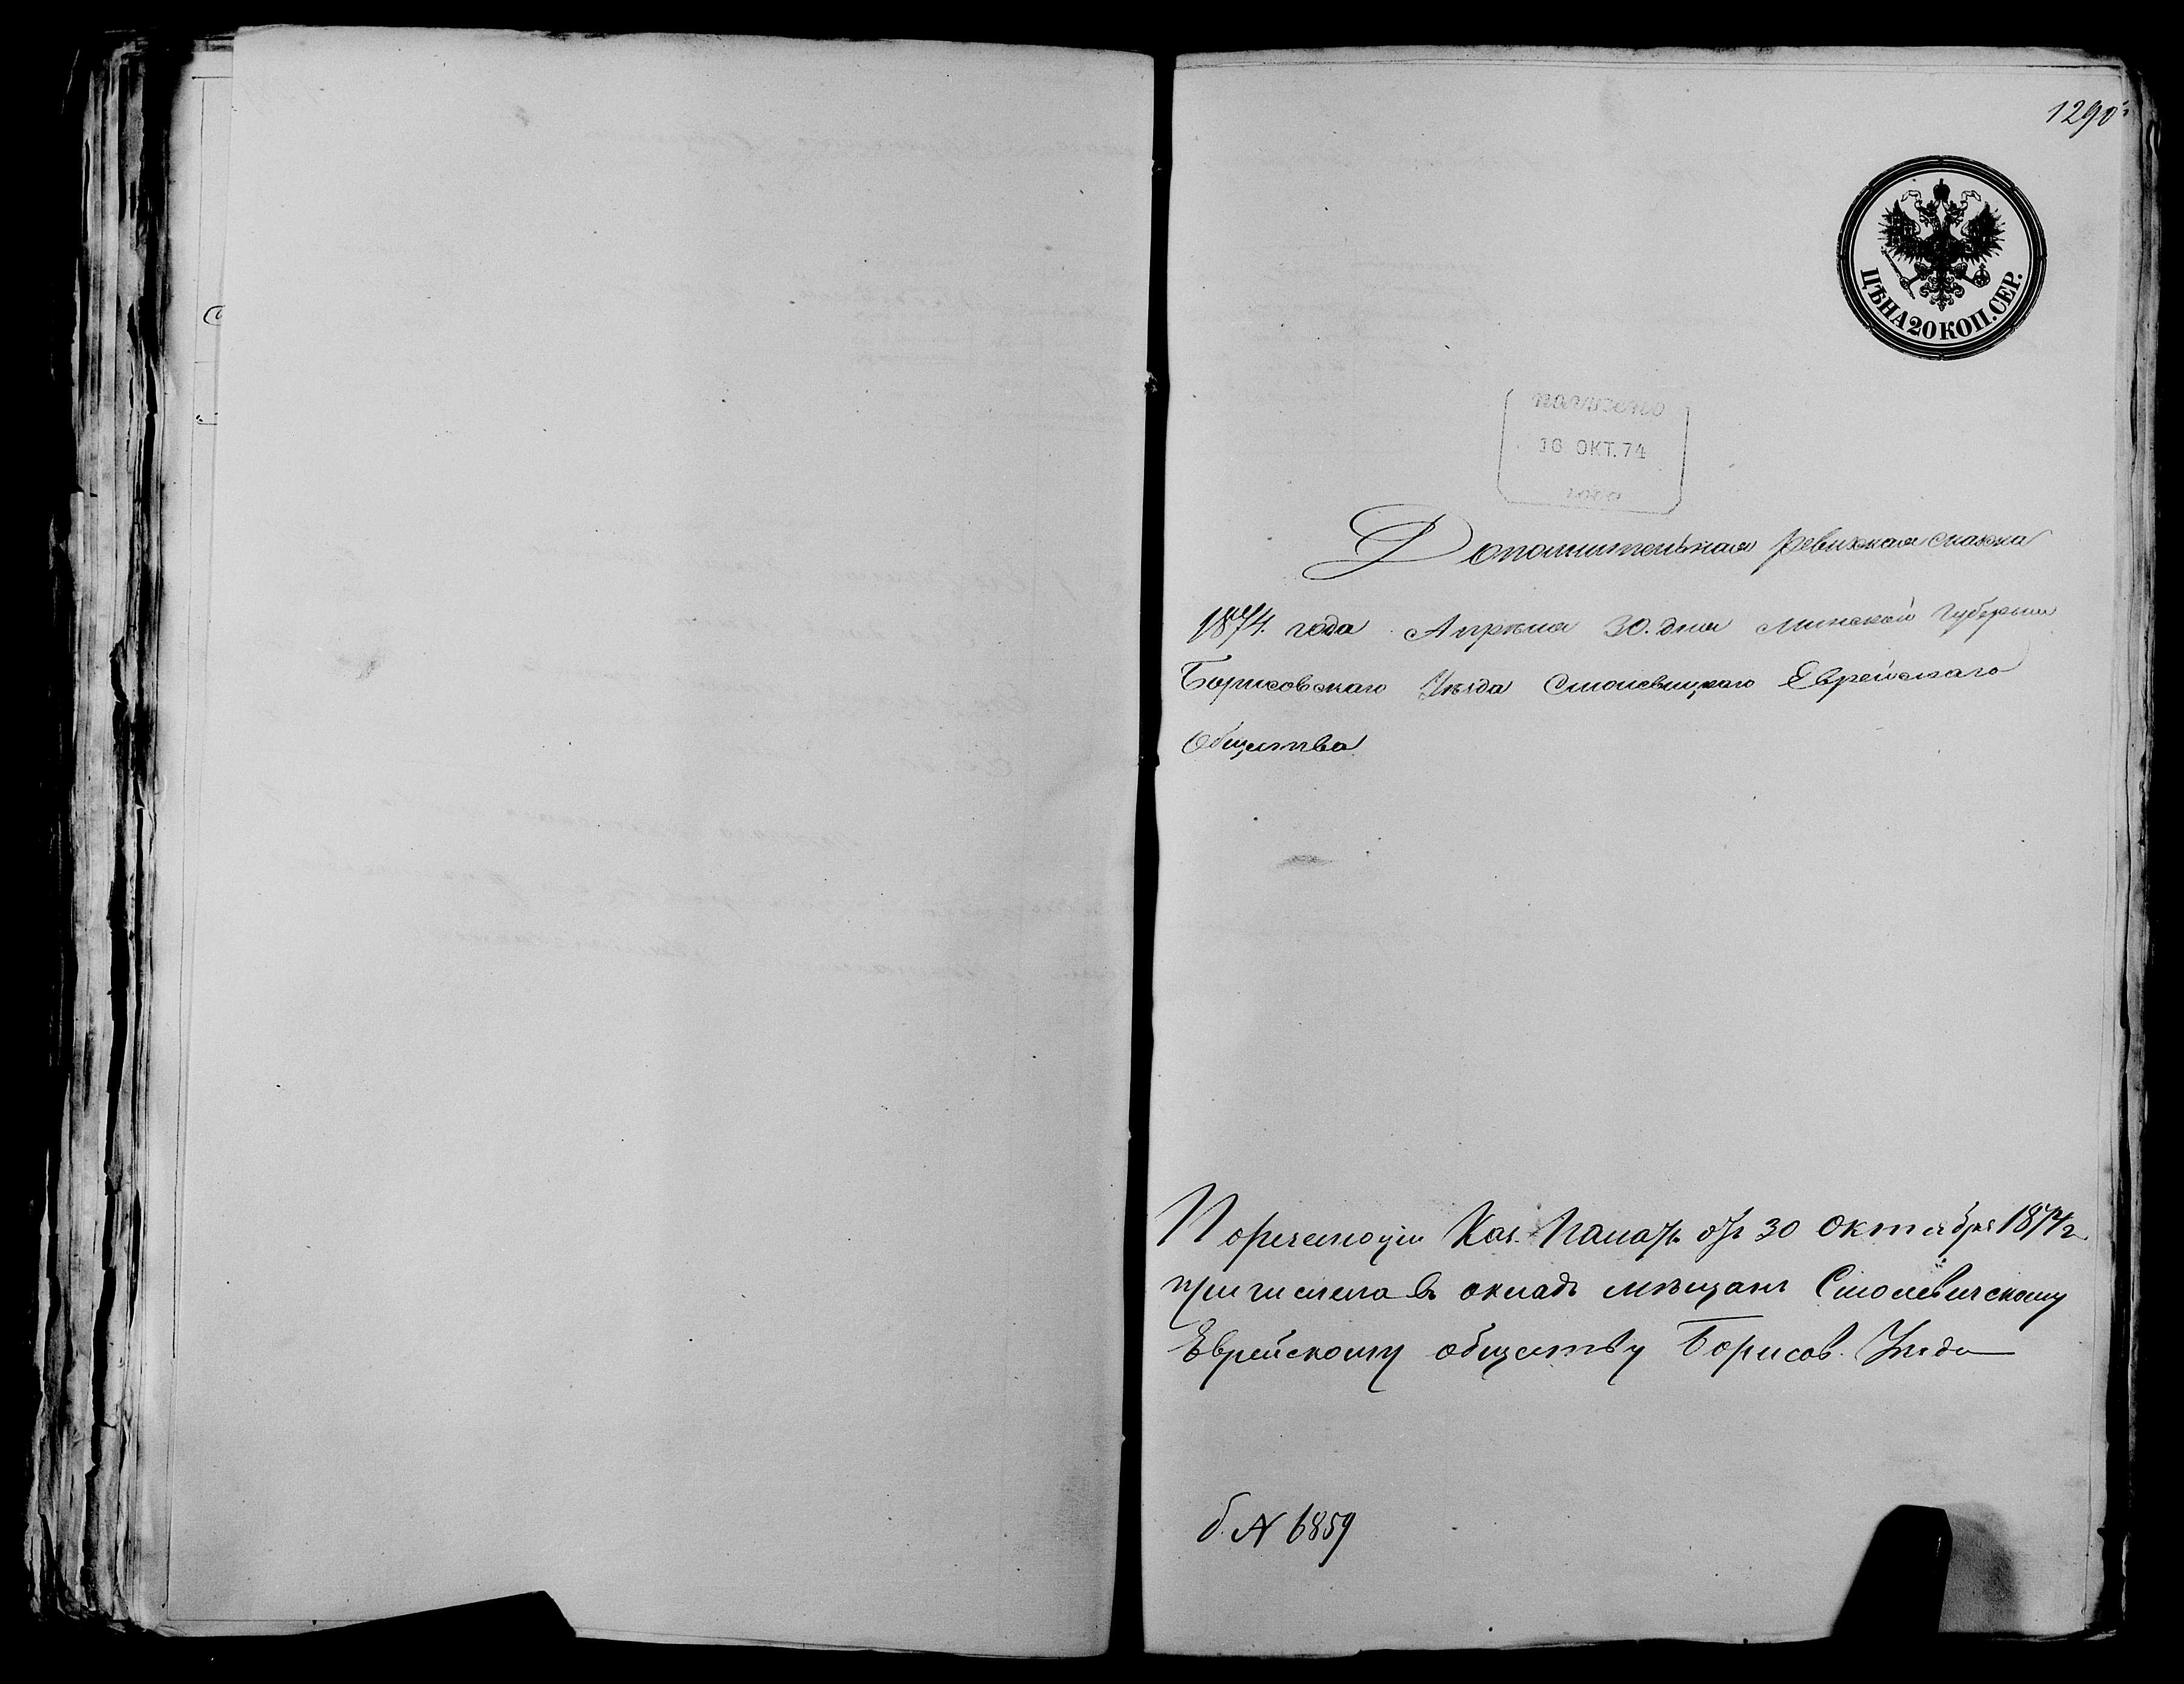 1290
ЦѢНА 20 КОП. СЕР.
получено
16 ОКТ. 74
года
Дополнительная ревизкая сказка
1874. года Апрѣля 30. дня Минской Губерніи
Борисовскаго Уѣзда Смолевицкаго Еврейскаго
Общества
По Каз. Палаты отъ 30 Октября 1874 г.
причислена въ окладъ мѣщанъ Смолевичскому
Еврейскому обществу Борисов. Уѣзда
б. № 6859